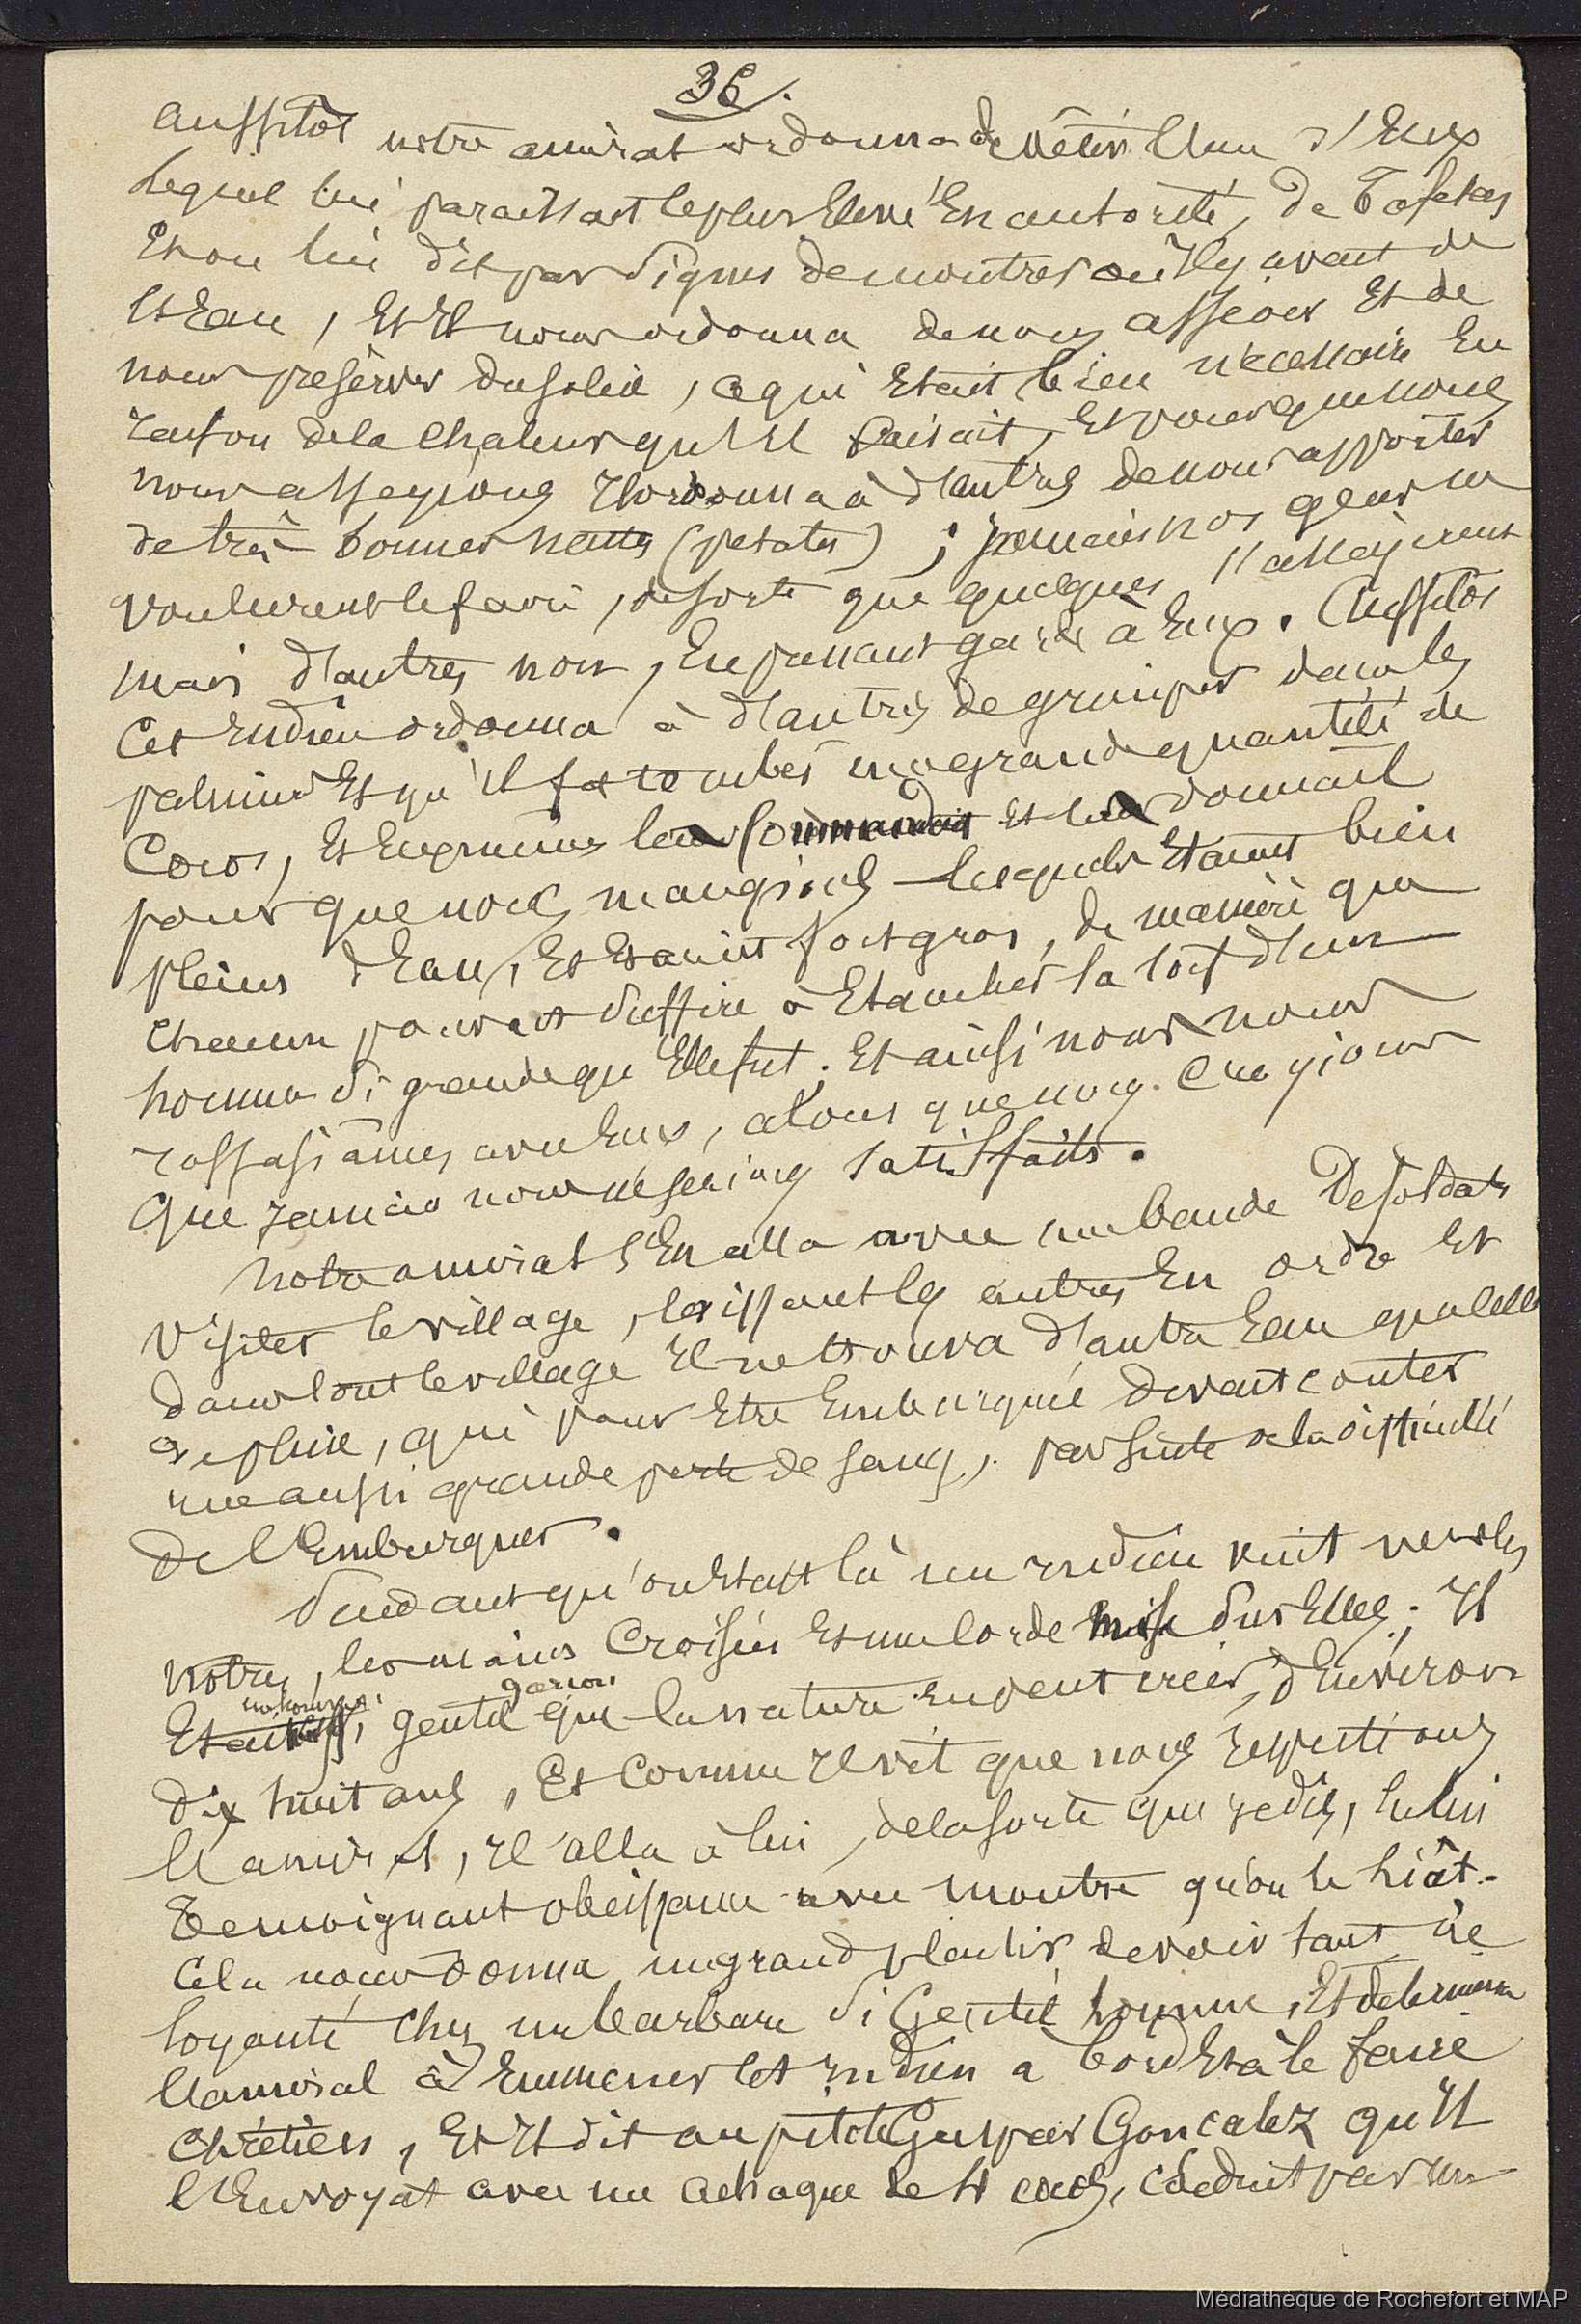 36.
aussitôt notre amiral ordonna de vêtir l'un d'Eux
lequel lui paraissait le plus Elevé En autorité, de Tafetas
Et on lui dit par Signes de montrer où Il y avait de
l'Eau, Et Il nous ordonna de nous asseoir Et de
nous préserver du soleil, ce qui Etait bien nécessaire En
raison de la chaleur qu'Il faisait, Et pour que nous
nous asseyions Il ordonna à d'autres de nous apporter
de très bonnes nattes (petates) ; jamais nos gens ne
voulurent le faire, de sorte que quelques s'asseyèrent
mais d'autres non, En prenant garde à Eux. Aussitôt
cet Indien ordonna à d'autres de grimper dans les
palmiers Et qu'il fit tomber une grande quantité de
Cocos, Et Eux-mêmes les commandait et les donnait
pour que nous mangions lesquels Etaient bien
pleins d'Eau, Et Etaient fort gros, de manière que
chacun pouvait Suffire à Etancher la soif d'un
homme Si grande qu'Elle fut. Et ainsi nous nous
rassasiâmes avec Eux, alors que nous croyions
que Jamais nous ne serions satisfaits.
Notre amiral s'En alla avec une bande De soldats
Visiter le village, laissant les autres En ordre Et
dans tout le village Il ne trouva d'autre Eau que celle
de pluie, qui pour Etre Embarquée devait couter
une aussi grande perte de sang, par Suite de la difficulté
de l'Embarquer.
Pendant qu'on Etait là un Indien vint vers les
notres, les mains Croisées Et une corde mise Sur Elles ; Il
garçon
Etait gentil que la nature En peut créer, d'Environ
dix huit ans, Et comme Il vit que nous respections
l'amiral, Il alla à lui, de la sorte que je dis, lui
Temoignant obeissance avec montre qu'on le liât.
Cela nous donna un grand plaisir de voir tant de
loyauté chez un barbare Si Gentil homme, Et détermina
l'amiral à Emmener cet Indien a bord Et à le faire
chrétien, Et Il dit au pilote Gaspar Goncalez qu'Il
l'Envoyat avec un achaque de cocos, conduit par un
Médiathèque de Rochefort et MAP